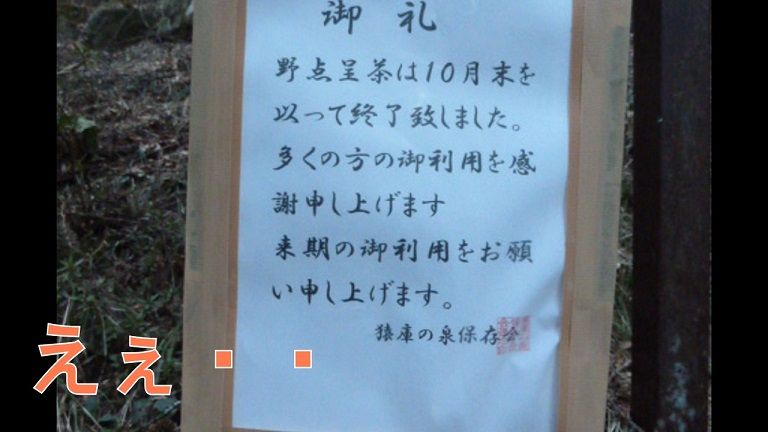 御礼
野点呈茶は10月末を
以って終了致しました。
多くの方の御利用を感
謝申し上げます
来期の御利用をお願
い申し上げます。
猿庫の泉保存会
ええ・・